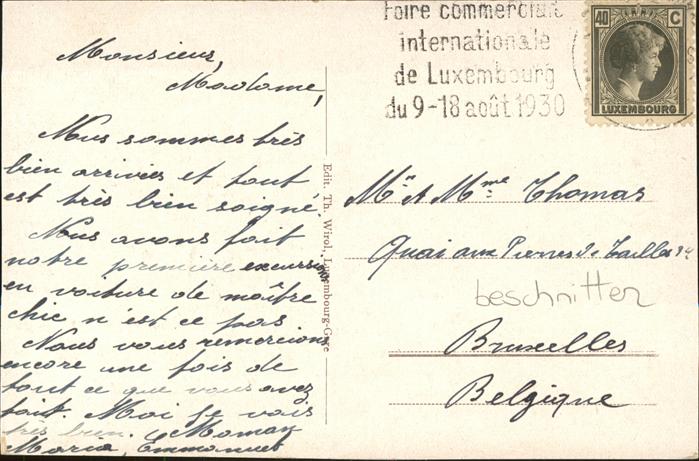 Foire commerciale
internationale
de Luxembourg
du 9-18 août 1930
40 C
LUXEMBOURG
Monsieur,
Madame,
Nous sommes très
bien arrivés et tout
est très bien soigné.
Nous avons fait
notre première excursion
en voiture de maître
chic n'est ce pas
Nous vous remercions
encore une fois de
tout ce que vous avez
fait. Moi je vais
très bien. Maman
Maria, Emmanuel
Edit. Th. Wirol, Luxembourg-Gare
Mr et Mme Thomas
Quai aux Pierres de Tailles
beschnitten
Bruxelles
Belgique